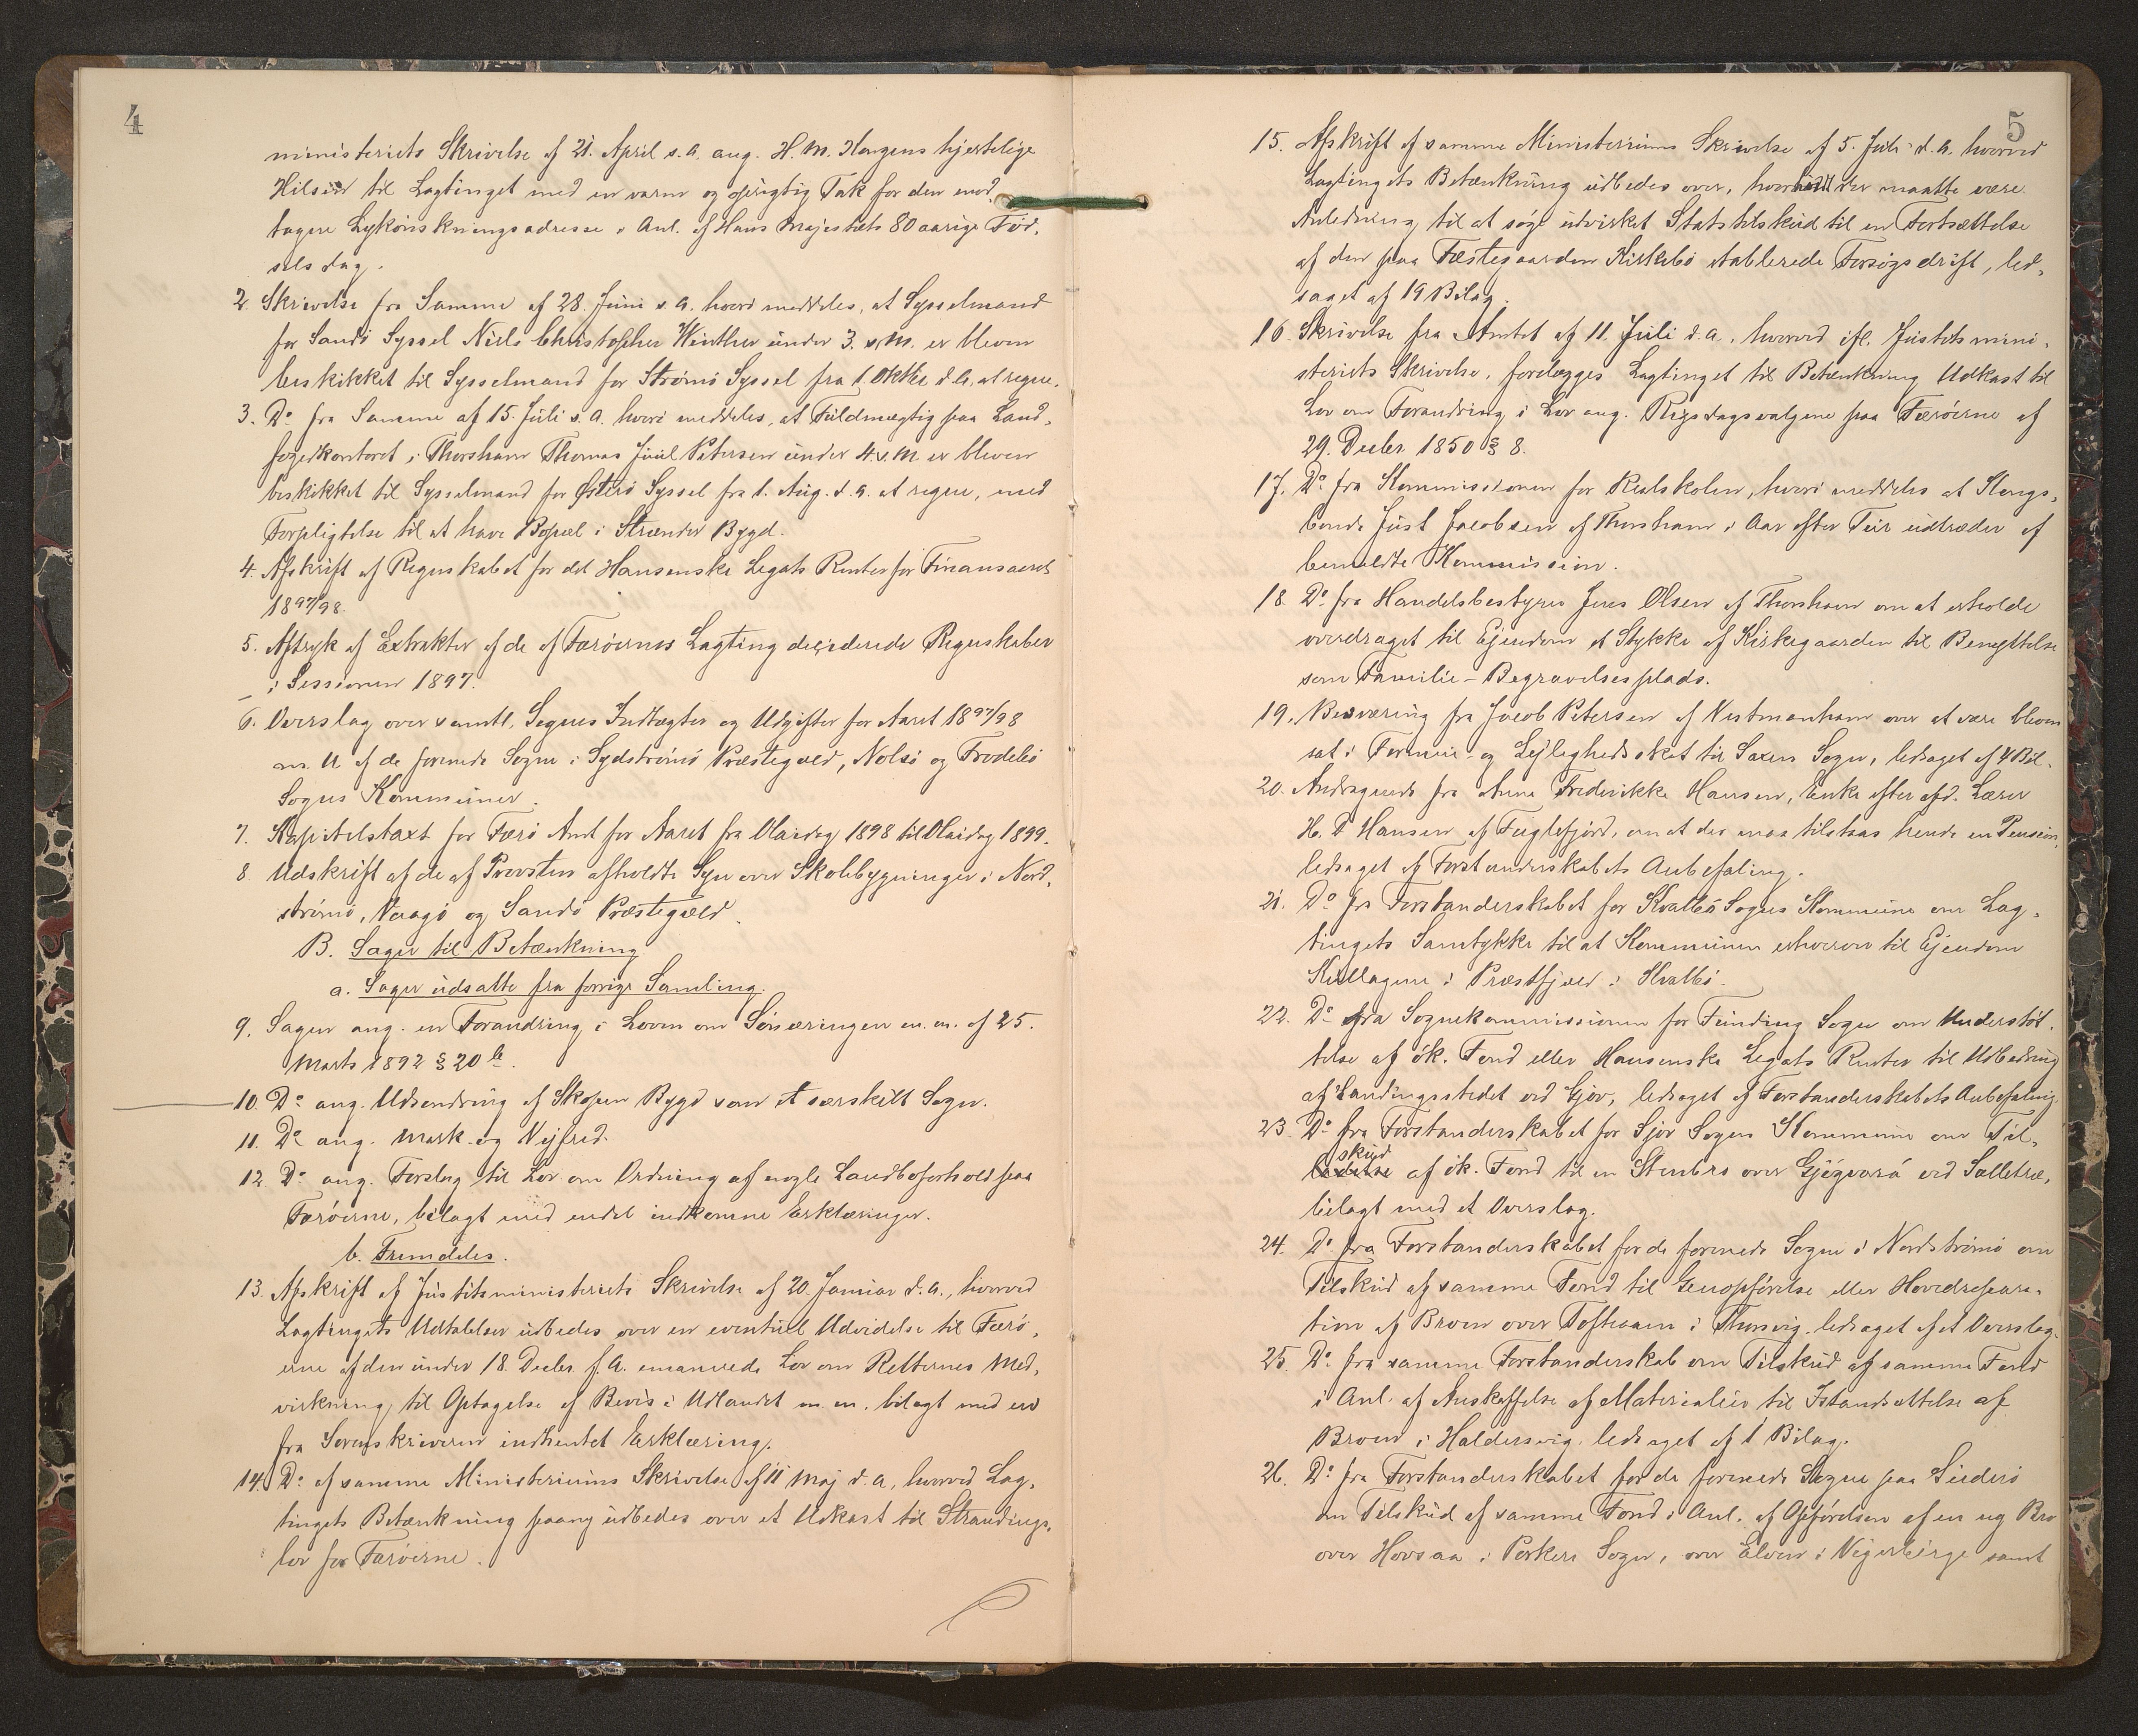 4
ministeriets Skrivelse af 21. April s. A. ang. H. M. Kongens hjertelige
Hilsen til Lagtinget med en varm og oprigtig Tak for den mod-
tagne Lykønskningsadresse i Anl. af Hans Majestæts 80 aarige Fød-
selsdag.
2. Skrivelse fra Samme af 28. Juni s. A. hvori meddeles, at Sysselmand
for Sandø Syssel Niels Christopher Winther under 3. s. M. er bleven
beskikket til Sysselmand for Strømø Syssel fra 1. Oktbr. d. A. at regne.
3. Do fra Samme af 15. Juli s. A. hvori meddeles, at Fuldmægtig paa Land-
fogedkontoret i Thorshavn Thomas Juul Petersen under 4. s. M. er bleven
beskikket til Sysselmand for Østerø Syssel fra 1. Aug. d. A. at regne, med
Forpligtelse til at have Bopæl i Strænder Bygd.
4. Afskrift af Regnskabet for det Hansenske Legats Renter for Finansaaret
1897/98.
5. Aftryk af Extrakter af de af Færøernes Lagting deciderede Regnskaber
i Sessionen 1897.
6. Overslag over samtl. Sognes Indtægter og Udgifter for Aaret 1897/98
m. U. af de forenede Sogne i Sydstrømø Præstegæld, Nolsø og Frodebø
Sogns Kommuner.
7. Kapitelstaxt for Færø Amt for Aaret fra Olaidag 1898 til Olaidag 1899.
8. Udskrift af de af Provsten afholdte Syn over Skolebygninger i Nord-
strømø, Vaagø og Sandø Præstegæld.
B. Sager til Betænkning
a. Sager udsatte fra forrige Samling.
9. Sagen ang. en Forandring i Loven om Sønæringen m. m. af 25.
Marts 1892 § 20 b.
10. Do ang. Udsondring af Skopen Bygd som et særskilt Sogn.
11. Do ang. Mark- og Vejfred.
12. Do ang. Forslag til Lov om Ordning af nogle Landboforhold paa
Færøerne, bilagt med endel indkomne Erklæringer.
b. Fremdeles.
13. Afskrift af Justitsministeriets Skrivelse af 20. Januar d. A., hvorved
Lagtingets Udtalelser udbedes over en eventuel Udvidelse til Færø-
erne af den under 18. Decbr. f. A. emanerede Lov om Retternes Med-
virkning til Optagelse af Bevis i Udlandet m. m. bilagt med en
fra Sorenskriveren indhentet Erklæring.
14. Do af samme Ministeriums Skrivelse af 11 Maj d. A., hvorved Lag-
tingets Betænkning paany udbedes over et Udkast til Strandings-
lov for Færøerne.
5
15. Afskrift af samme Ministeriums Skrivelse af 5. Juli d. A. hvorved
Lagtingets Betænkning udbedes over, hvorvidt der maatte være
Anledning til at søge udvirket Statstilskud til en Fortsættelse
af den paa Fæstegaarden Kirkebø etablerede Forsøgsdrift, led-
saget af 19 Bilag.
16. Skrivelse fra Amtet af 11. Juli d. A., hvorved ifl. Justitsmini-
steriets Skrivelse, forelægges Lagtinget til Betænkning Udkast til
Lov om Forandring i Lov ang. Rigsdagsvalgene paa Færøerne af
29. Decbr 1850 § 8.
17. Do fra Kommissionen for Realskolen, hvori meddeles at Kongs-
bonde Just Jacobsen af Thorshavn i Aar efter Tur udtræder af
bemeldte Kommission.
18. Do fra Handelsbestyrer Jens Olsen af Thorshavn om at erholde
overdraget til Ejendom et Stykke af Kirkegaarden til Benyttelse
som Familie-Begravelsesplads.
19. Besværing fra Jacob Petersen af Vestmanhavn over at være bleven
sat i Formue- og Lejlighedsskat til Saxen Sogn, ledsaget af 4 Bil.
20. Andragende fra Anne Frederikke Hansen, Enke efter afd. Lærer
H. D. Hansen af Fuglefjord, om at der maa tilstaas hende en Pension,
ledsaget af Forstanderskabets Anbefaling.
21. Do fra Forstanderskabet for Kvalbø Sogns Kommune om Lag-
tingets Samtykke til at Kommunen erhverver til Ejendom
Kullagene i Præstfjeld i Kvalbø.
22. Do fra Sognekommissionen for Funding Sogn om Understøt-
telse af øk. Fond eller Hansenske Legats Renter til Udbedring
af Landingsstedet ved Gjov, ledsaget af Forstanderskabets Anbefaling.
23. Do fra Forstanderskabet for Sjov Sogns Kommune om Til-
skud
af øk. Fond til en Stenbro over Gjógvará ved Selletræ,
bilagt med et Overslag.
24. Do fra Forstanderskabet for de forenede Sogne i Nordstrømø om
Tilskud af samme Fond til Genopførelse eller Hovedrepara-
tion af Broen over Toftaaen i Thorsvig ledsaget af et Overslag.
25. Do fra samme Forstanderskab om Tilskud af samme Fond
i Anl. af Anskaffelse af Materialier til Istandsættelse af
Broen i Haldersvig, ledsaget af 1 Bilag.
26. Do fra Forstanderskabet for de forenede Sogne paa Suderø
om Tilskud af samme Fond i Anl. af Opførelsen af en ny Bro
over Hovsaa i Porkere Sogn, over Elven i samt